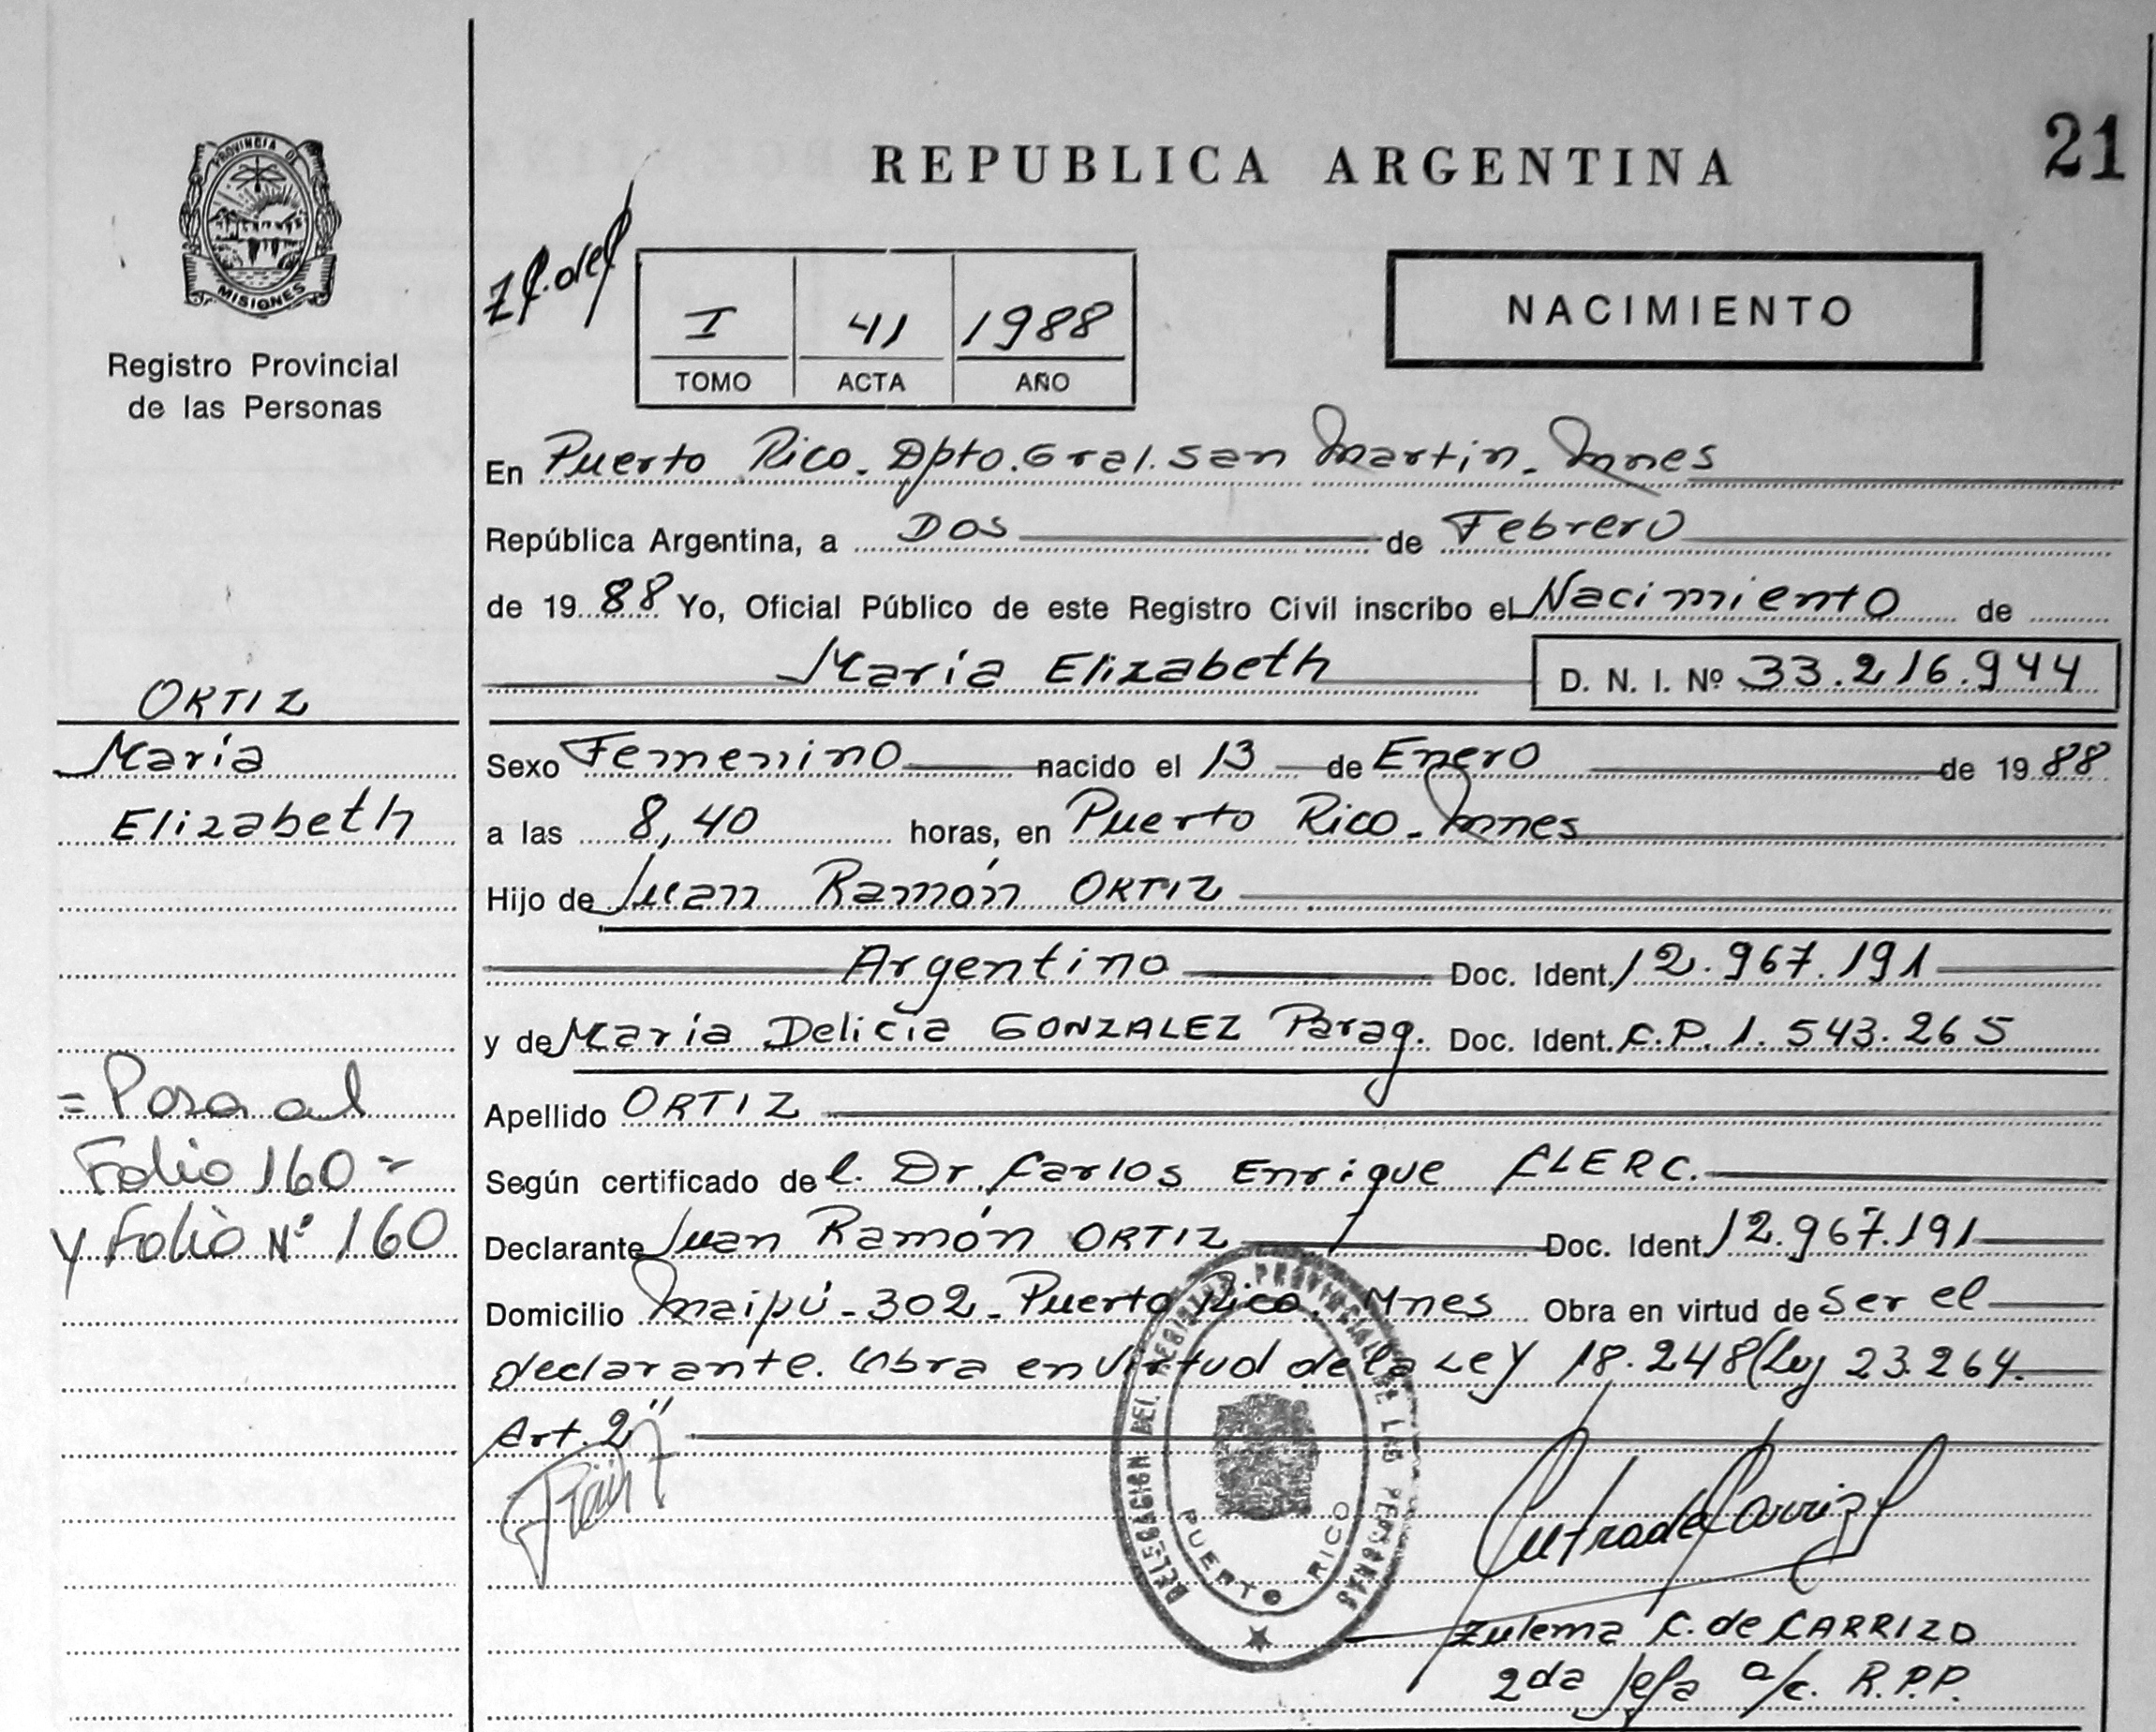 REPUBLICA ARGENTINA
21
PROVINCIA DE
MISIONES
Registro Provincial
de las Personas
I 41 1988
TOMO ACTA AÑO
NACIMIENTO
En Puerto Rico. Dpto. Gral. San Martin. Mnes
República Argentina, a Dos de Febrero
de 1988 Yo, Oficial Público de este Registro Civil inscribo el Nacimiento de
María Elizabeth D. N. I. Nº 33.216.944
ORTIZ
María
Elizabeth
Sexo Femenino nacido el 13 de Enero de 1988
a las 8,40 horas, en Puerto Rico. Mnes
Hijo de Juan Ramón ORTIZ
Argentino Doc. Ident. 12.967.191
y de María Delicia GONZALEZ Parag. Doc. Ident. C.P. 1.543.265
Apellido ORTIZ
= Pasa al
Folio 160 =
y Folio Nº 160
Según certificado del. Dr. Carlos Enrique CLERC.
Declarante Juan Ramón ORTIZ Doc. Ident. 12.967.191
Domicilio Maipú - 302 - Puerto Rico. Mnes Obra en virtud de ser el
declarante. Obra en virtud de la Ley 18.248 (Ley 23.264.
Art. 2"
DELEGACION DEL REGISTRO PROVINCIAL DE LAS PERSONAS
PUERTO RICO
Zulema C. de CARRIZO
2da Jefa a/c. R.P.P.